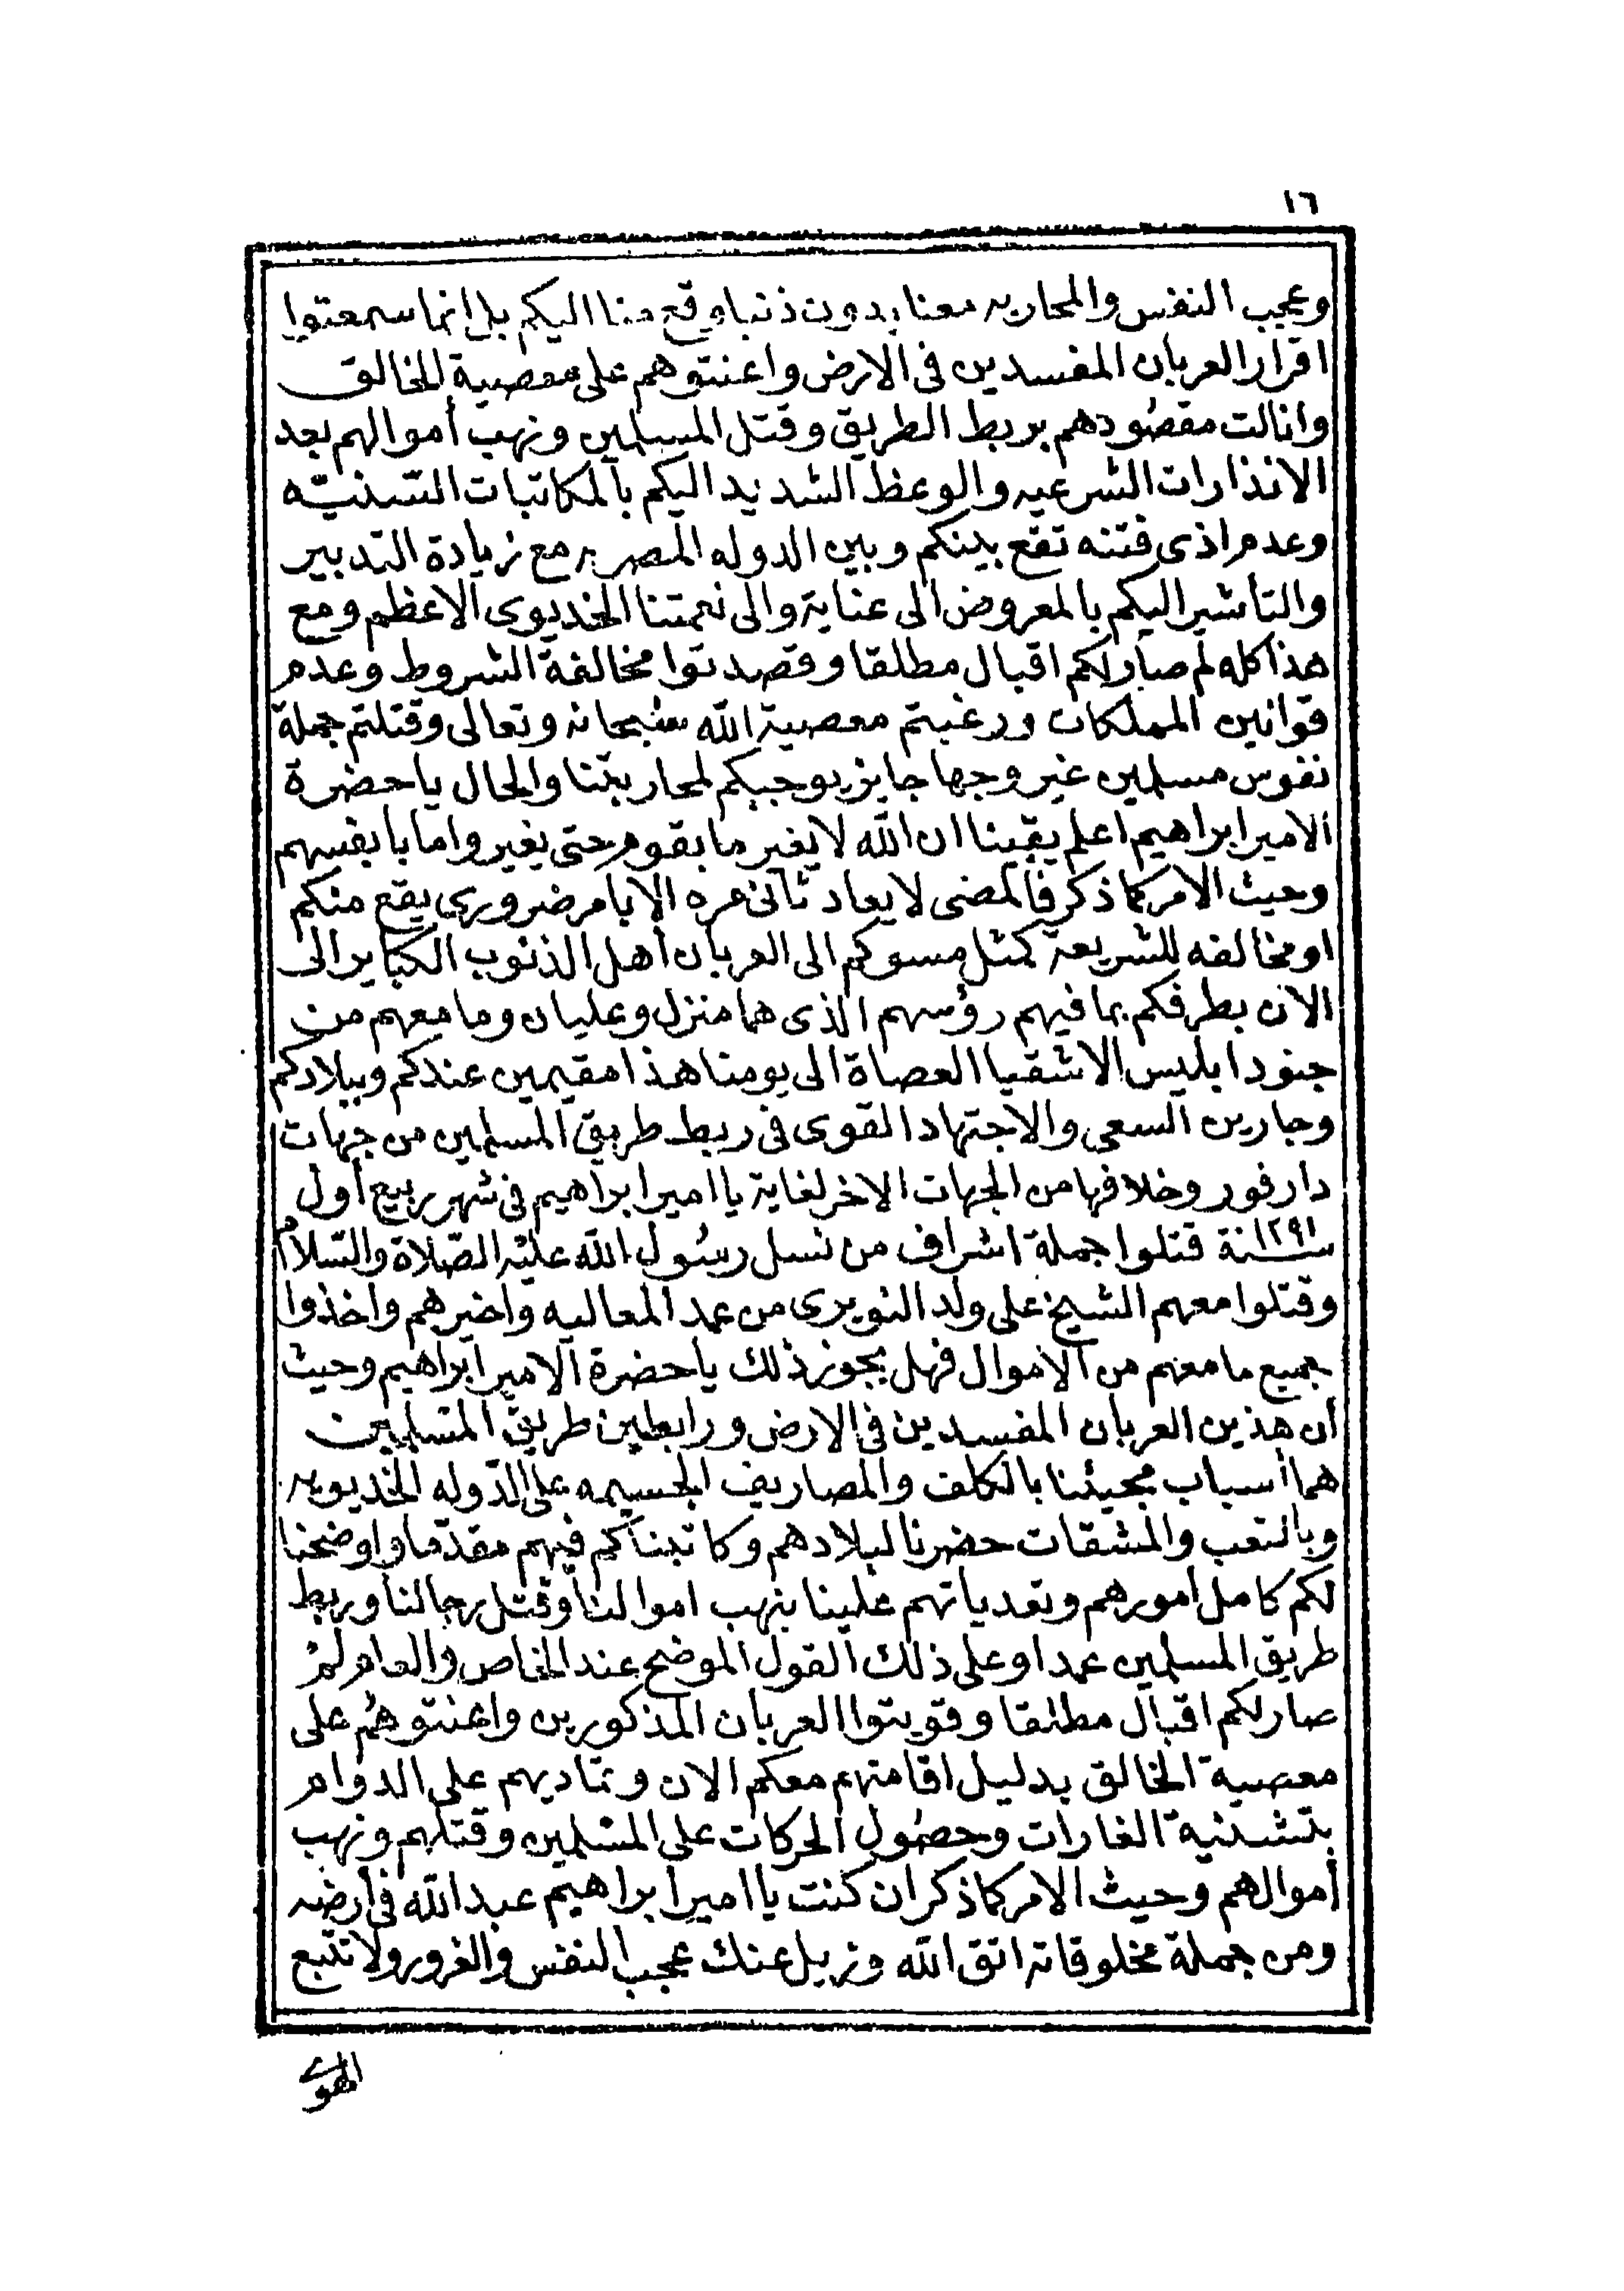 ١٦
وعجب النفس والمحاربه معنا بدون ذنبا وقع منا اليكم بل انما سمعتوا
اقرار العربان المفسدين فى الارض واعنتوهم على معصية الخالق
وانالت مقصُودهم بربط الطريق وقتل المسلمين ونهب أموالهم بعد
الانذارات الشرعيه والوعظ الشديد اليكم بالمكاتبات السّنيّه
وعدم اذى فتنه تقع بينكم وبين الدوله المصريه مع زيادة التدبير
والتأشير اليكم بالمعروض الى عناية والى نعمتنا الخديوى الاعظم ومع
هذا كله لم صار لكم اقبال مطلقا وقصدتوا مخالفة الشروط وعدم
قوانين المملكات ورغبتم معصية الله سُبحانه وتعالى وقتلتم جملة
نفوس مسلمين غير وجها جايز يوجبكم لمحاربتنا والحال ياحضرة
الامير ابراهيم اعلم يقينا ان الله لا يغير ما بقوم حتى يغيروا ما بأنفسهم
وحيث الامر كما ذكر فالمضى لا يعاد ثانى مره الا بامر ضرورى يقع منكم
او مخالفه للشريعة كمثل مسوكم الى العربان أهل الذنوب الكباير الى
الان بطرفكم بما فيهم رؤسهم الذى هما منزل وعليان وما معهم من
جنود ابليس الاشقيا العصاة الى يومنا هذا مقيمين عندكم وببلادكم
وجارين السعى والاجتهاد القوى فى ربط طريق المسلمين من جهات
دارفور وخلافها من الجهات الاخر لغاية يا امير ابراهيم فى شهر ربيع أول
سنة ١٢٩١ قتلوا جملة اشراف من نسل رسُول الله عليْه الصّلاة والسّلامُ
وقتلوا معهم الشيخ على ولد النويرى من عمد المعاليه واخيرهم واخذوا
جميع ما معهم من الاموال فهل يجوز ذلك ياحضرة الامير ابراهيم وحيث
أن هذين العربان المفسدين فى الارض ورابطين طريق المسلمين
هما أسباب مجيئنا بالكلف والمصاريف الجسيمه على الدّوله الخديويه
وبالتعب والمشقات حضرنا لبلادهم وكاتبناكم فيهم مقدّما واوضحنا
لكم كامل أمورهم وتعدياتهم علينا بنهب اموالنا وقتل رجالنا وربط
طريق المسلمين عمدا وعلى ذلك القول الموضح عند الخاص والعام لمْ
صار لكم اقبال مطلقا وقويتوا العربان المذكورين واعنتوهُم على
معصية الخالق بدليل اقامتهم معكم الان وتماديهم على الدوام
بتشنية الغارات وحصُول الحركات على المسلمين وقتلهم ونهب
أموالهم وحيث الامر كما ذكر ان كنت يا امير ابراهيم عبد الله فى أرضه
ومن جملة مخلوقاته اتق الله وزيل عنك عجب النفس والغرور ولا تتبع
الهوى